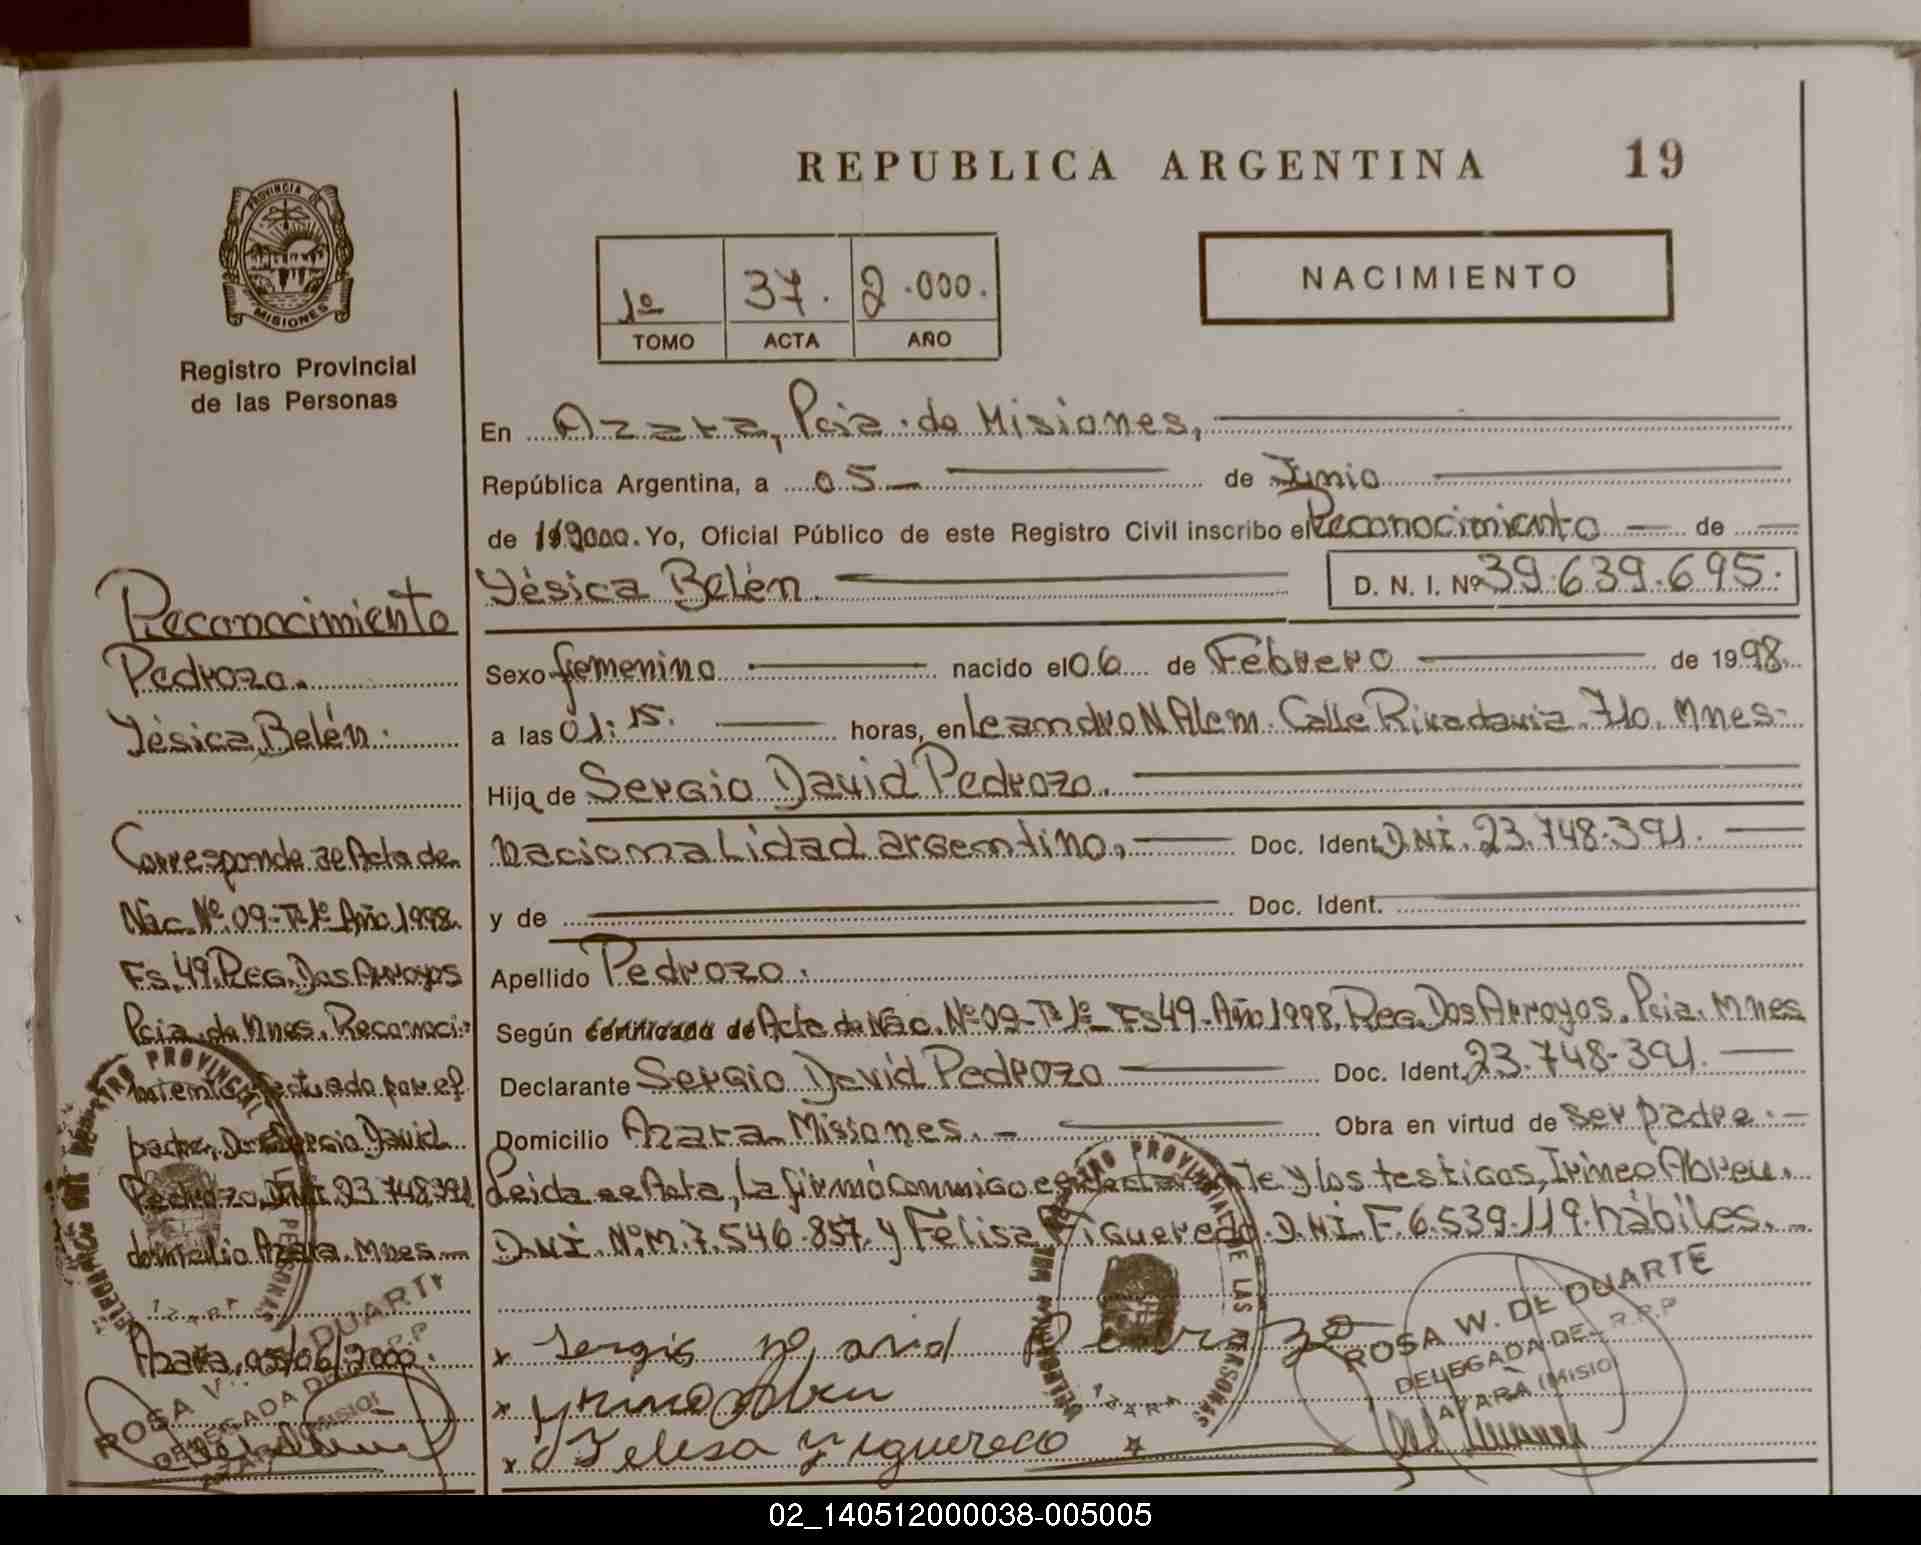 REPUBLICA ARGENTINA 19
PROVINCIA DE
MISIONES
Registro Provincial
de las Personas
1º 37. 2.000.
TOMO ACTA AÑO
NACIMIENTO
En Azara, Pcia. de Misiones,
República Argentina, a 05 de Junio
de 2000. Yo, Oficial Público de este Registro Civil inscribo el Reconocimiento de
Yésica Belén. D. N. I. Nº 39.639.695.
Sexo femenino nacido el 06 de Febrero de 1998.
a las 01:15. horas, en Leandro N Alem. Calle Rivadavia. 710. Mnes-
Hija de Sergio David Pedrozo.
nacionalidad argentino, Doc. Ident. D.N.I. 23.748.391.
y de Doc. Ident.
Apellido Pedrozo.
Según certificado de Acta de Nac. Nº 09-Tº 1º- Fs 49-Año 1998. Reg. Dos Arroyos. Pcia. Mnes
Declarante Sergio David Pedrozo Doc. Ident. 23.748-391.
Domicilio Azara Misiones.- Obra en virtud de ser padre.-
Leida Acta, la firmó conmigo y los testigos, Irineo Abreu.
D.N.I. Nº M.7.546.857. y Felisa Figueredo. D.N.I. F.6.539.119. hábiles.
x Sergio David Pedrozo
x Yrineo Abreu
x Felisa Figueredo
ROSA W. DE DUARTE
DELEGADA DEL R.P.P
AZARA (MISIO
Reconocimiento
Pedrozo.
Yésica Belén.
Corresponde Acta de
Nac. Nº 09-Tº 1º Año 1998.
Fs. 49. Reg. Dos Arroyos
Pcia. de Mnes. Reconoci-
miento efectuado por el
padre, Sergio David
Pedrozo D.N.I. 23.748.391
domicilio Azara. Mnes
Azara, 05/06/2000.
02_140512000038-005005